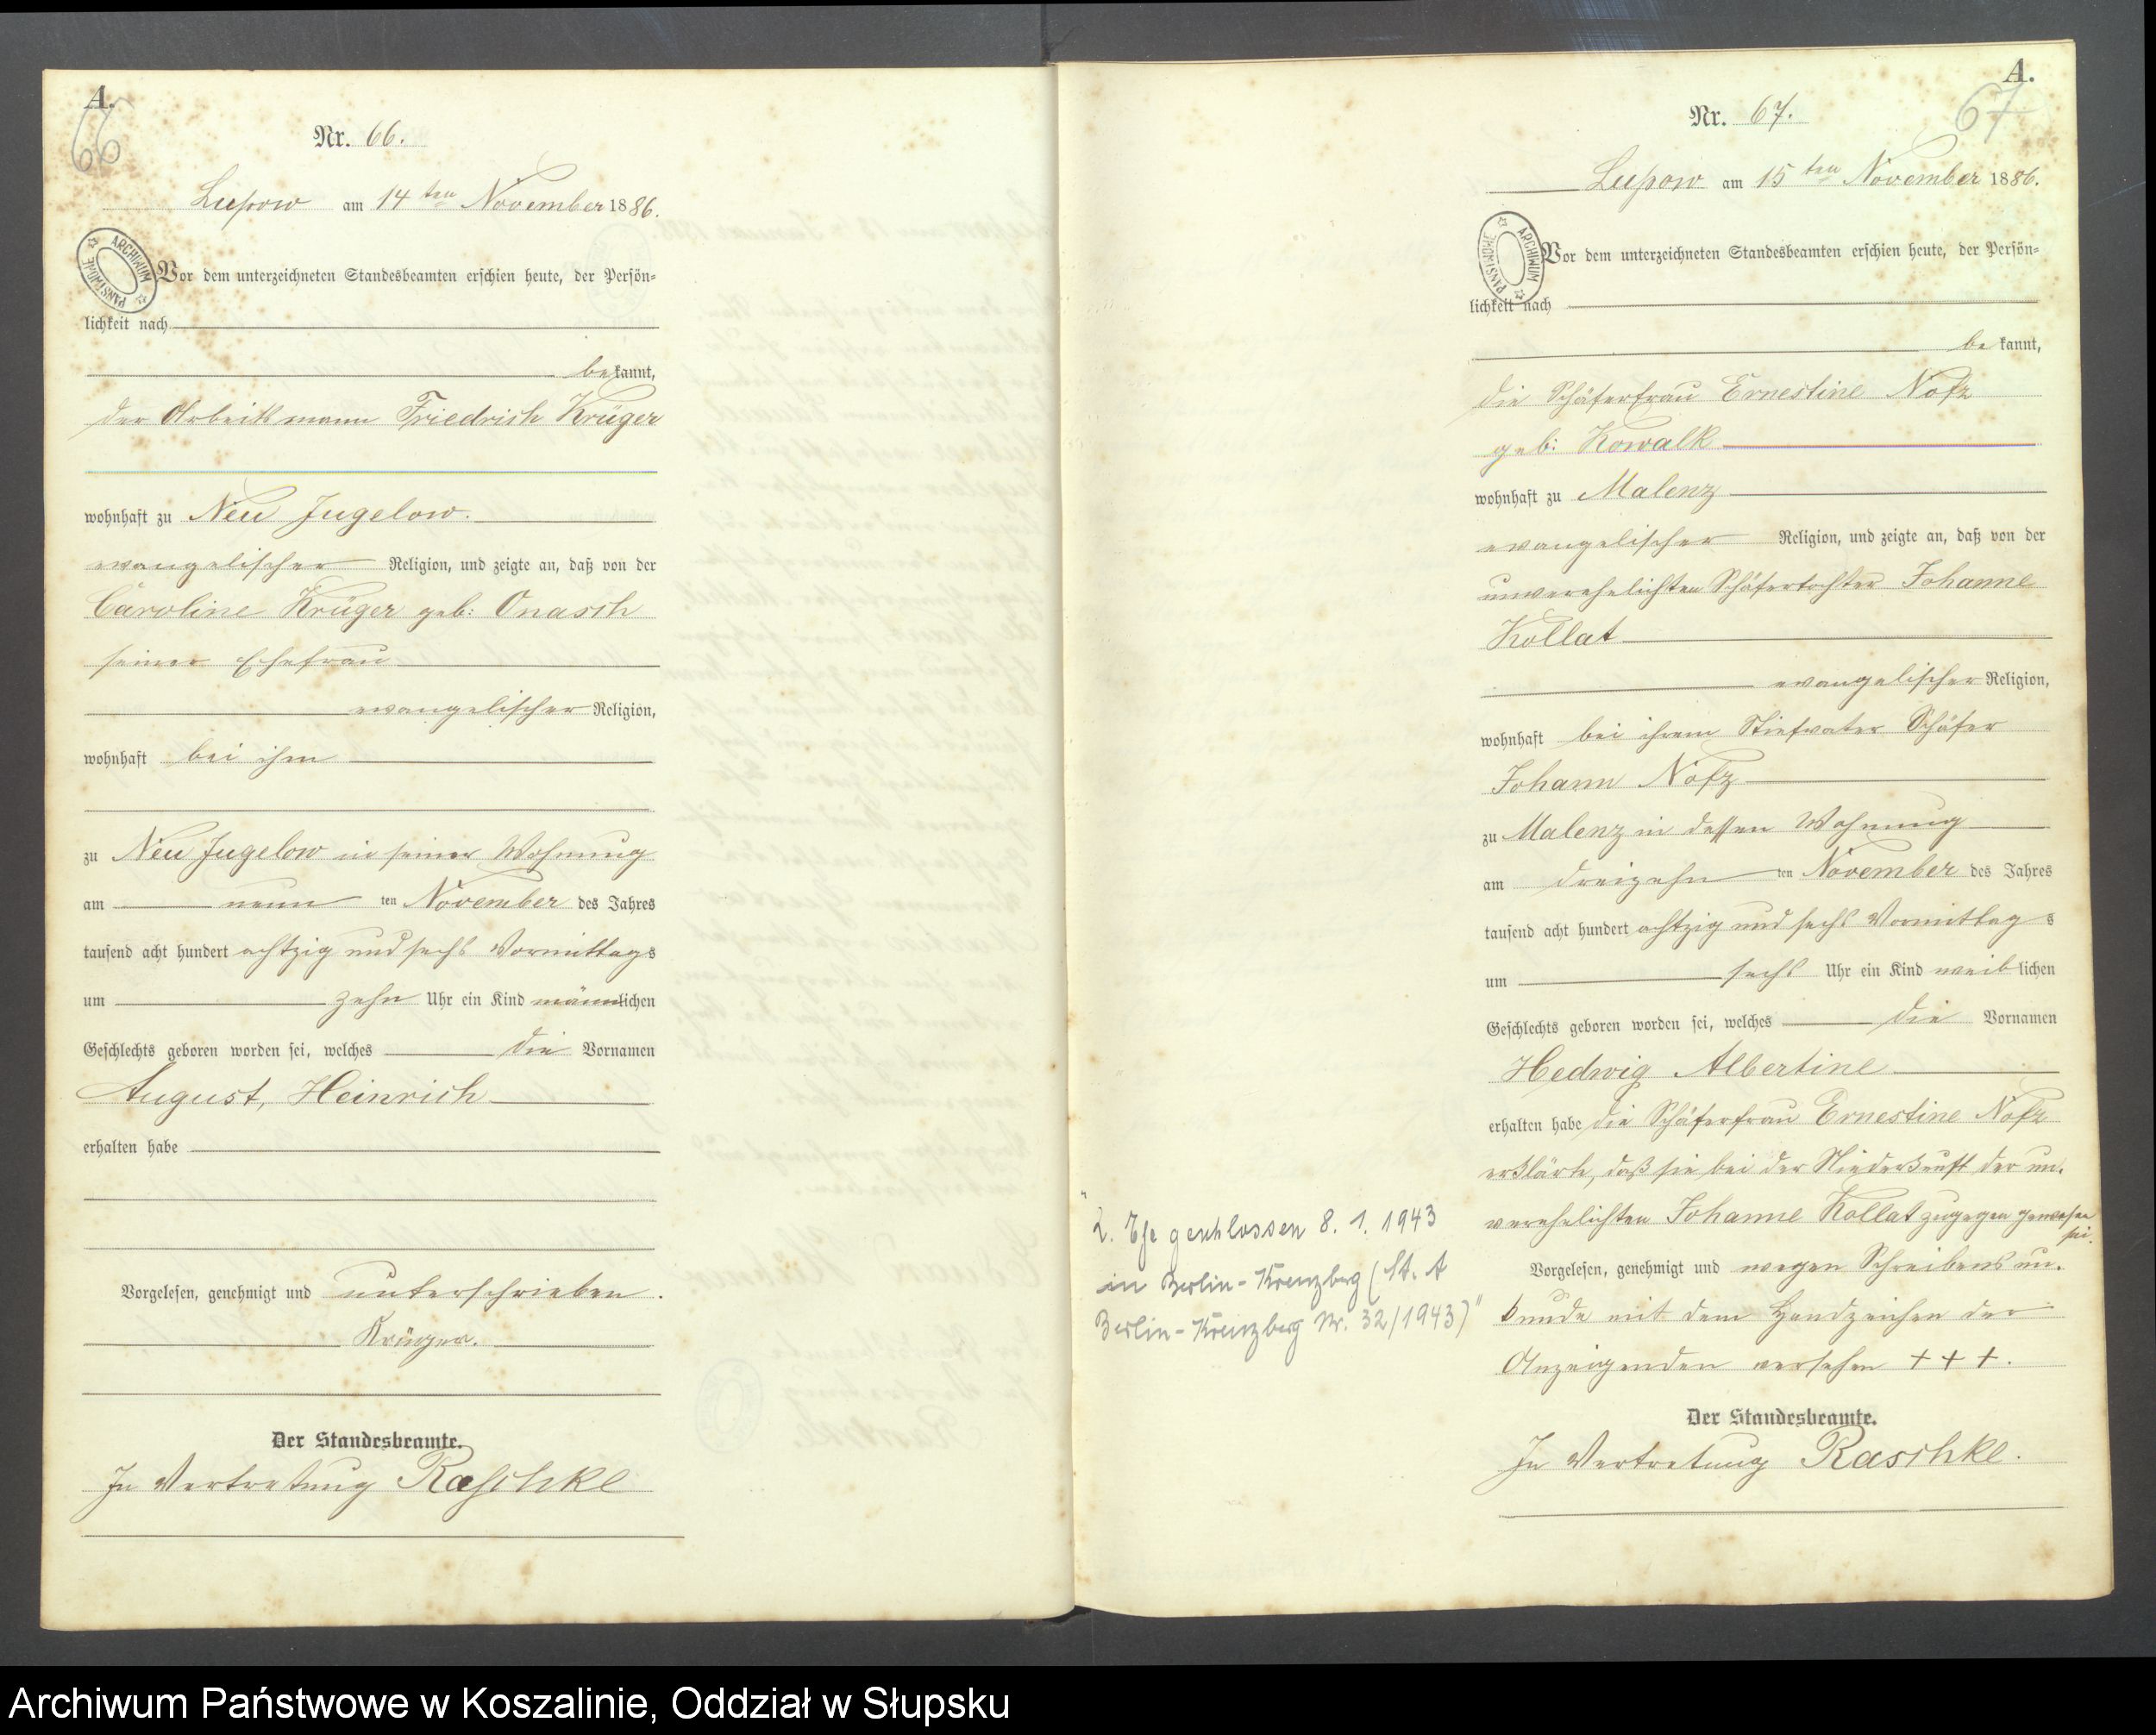 A.
66
Nr. 66.
Lupow am 14ten November 1886.
ARCHIWUM PAŃSTWOWE
Vor dem unterzeichneten Standesbeamten erschien heute, der Persön=
lichkeit nach
bekannt,
der Arbeitsmann Friedrich Krüger
wohnhaft zu Neu Jugelow.
evangelischer Religion, und zeigte an, daß von der
Caroline Krüger geb: Onasch
seiner Ehefrau
evangelischer Religion,
wohnhaft bei ihm
zu Neu Jugelow in seiner Wohnung
am neun ten November des Jahres
tausend acht hundert achtzig und sechs Vormittags
um zehn Uhr ein Kind männlichen
Geschlechts geboren worden sei, welches die Vornamen
August, Heinrich
erhalten habe
Vorgelesen, genehmigt und unterschrieben.
Krüger.
Der Standesbeamte.
In Vertretung Raschke
A.
67
Nr. 67.
Lupow am 15ten November 1886.
ARCHIWUM PAŃSTWOWE
Vor dem unterzeichneten Standesbeamten erschien heute, der Persön=
lichkeit nach
bekannt,
die Schäferfrau Ernestine Nofz
geb: Kowalk
wohnhaft zu Malenz
evangelischer Religion, und zeigte an, daß von der
unverehelichten Schäfertochter Johanne
Kollat
evangelischer Religion,
wohnhaft bei ihrem Stiefvater Schäfer
Johann Nofz
zu Malenz in dessen Wohnung
am dreizehn ten November des Jahres
tausend acht hundert achtzig und sechs Vormittags
um sechs Uhr ein Kind weiblichen
Geschlechts geboren worden sei, welches die Vornamen
Hedwig Albertine
erhalten habe die Schäferfrau Ernestine Nofz
erklärte, daß sie bei der Niederkunft der un-
verehelichten Johanne Kollat zugegen gewesen
sei.
Vorgelesen, genehmigt und wegen Schreibensun-
kunde mit dem Handzeichen der
Anzeigenden versehen + + +.
Der Standesbeamte.
In Vertretung Raschke.
"2. Ehe geschlossen 8. 1. 1943
in Berlin-Kreuzberg (St. A
Berlin-Kreuzberg Nr. 32/1943)"
Archiwum Państwowe w Koszalinie, Oddział w Słupsku